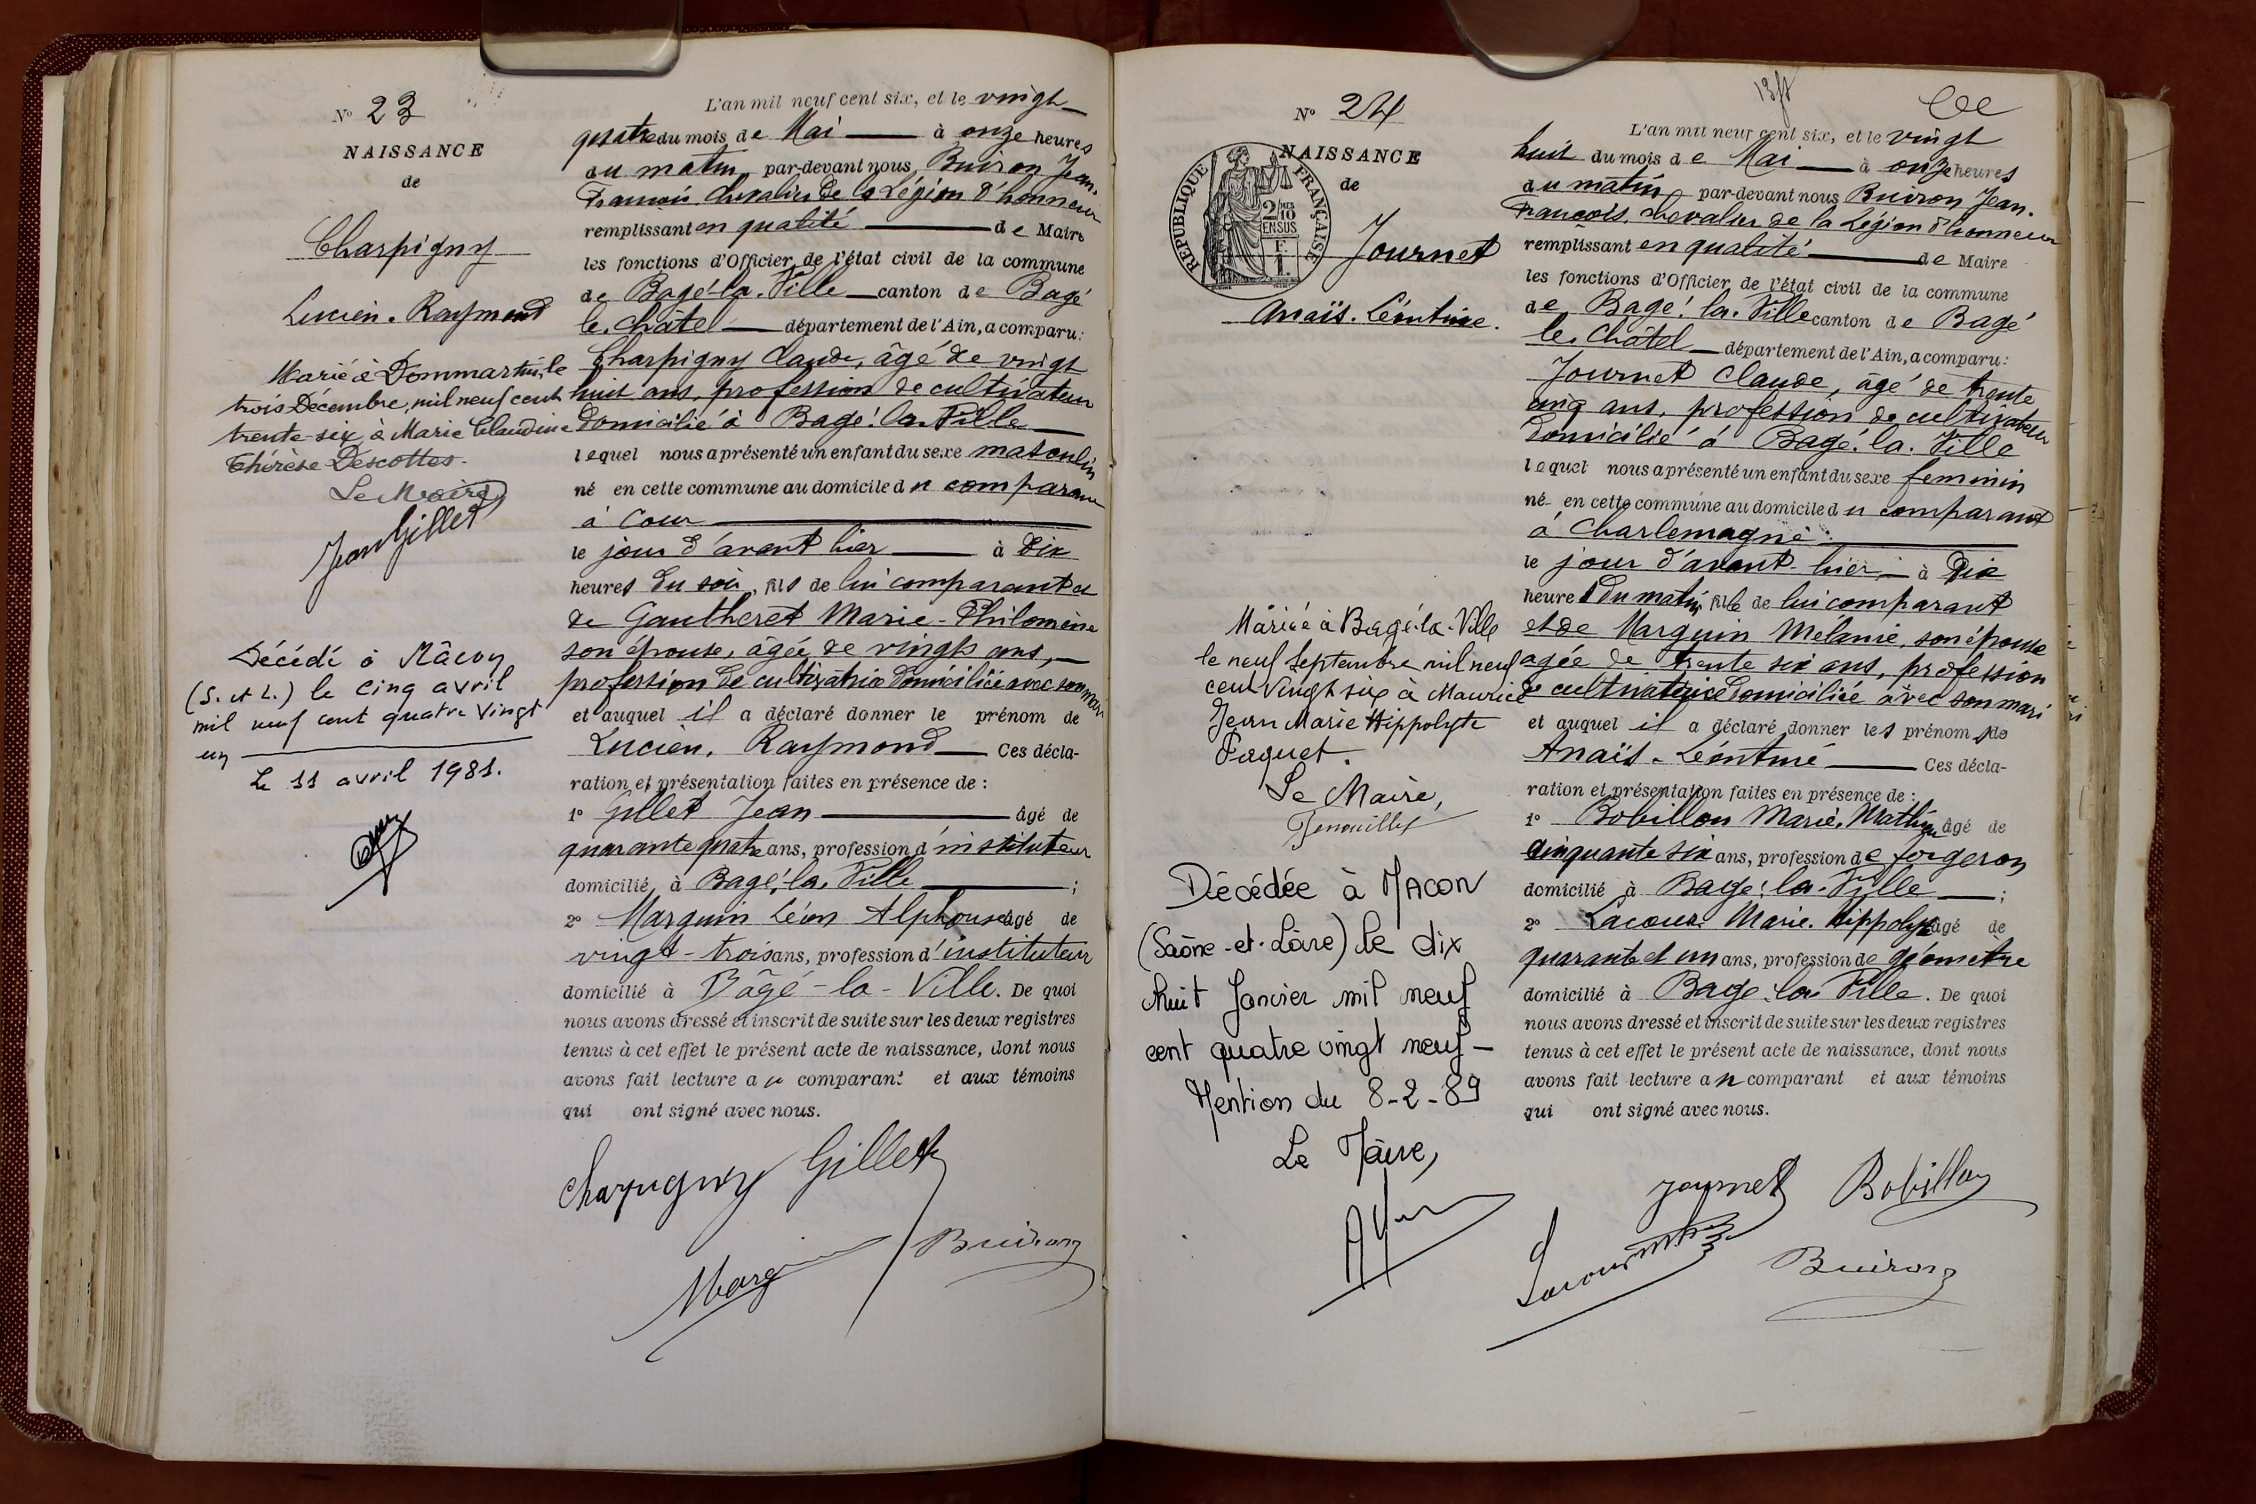 N° 23
NAISSANCE
de
Charpigny
Lucien. Raymond
Marié à Dommartin, le
trois Décembre, mil neuf cent
trente-six, à Marie Claudine
Thérèse Descottes.
Le Maire
Jean Gillet
Décédé à Mâcon
(S. et L.) le cinq avril
mil neuf cent quatre vingt
un
Le 11 avril 1981.
L'an mil neuf cent six, et le vingt
quatre du mois de Mai à onze heures
du matin par-devant nous Buiron Jean.
François chevalier de la Légion d'honneur
remplissant en qualité de Maire
les fonctions d'Officier de l'état civil de la commune
de Bagé-la-Ville canton de Bagé
le. Châtel département de l'Ain, a comparu:
Charpigny Claude, âgé de vingt
huit ans, profession de cultivateur
domicilié à Bagé-la-Ville
lequel nous a présenté un enfant du sexe masculin
né en cette commune au domicile du comparant
à Cour
le jour d'avant hier à dix
heures du soir, fils de lui comparant et
de Gautheret Marie-Philomène
son épouse, âgée de vingt ans,
profession de cultivatrice domiciliée avec son mari
et auquel il a déclaré donner le prénom de
Lucien. Raymond Ces décla-
ration et présentation faites en présence de :
1° Gillet Jean âgé de
quarante quatre ans, profession d'instituteur
domicilié à Bagé-la-Ville ;
2° Marguin Léon Alphonse âgé de
vingt-trois ans, profession d'instituteur
domicilié à Bâgé-la-Ville. De quoi
nous avons dressé et inscrit de suite sur les deux registres
tenus à cet effet le présent acte de naissance, dont nous
avons fait lecture au comparant et aux témoins
qui ont signé avec nous.
Charpigny Gillet
Marguin Buiron
N° 24
NAISSANCE
de
RÉPUBLIQUE FRANÇAISE
2/10
EN SUS
Journet
Anaïs. Léontine.
Mariée à Bagé-la-Ville
le neuf Septembre mil neuf
cent vingt six à Maurice
Jean Marie Hippolyte
Paquet.
Le Maire,
Décédée à MACON
(Saône-et-Loire) le dix
huit Janvier mil neuf
cent quatre vingt neuf-
Mention du 8-2-89
Le Maire,
L'an mil neuf cent six, et le vingt
huit du mois de Mai à onze heures
du matin par-devant nous Buiron Jean.
François, chevalier de la Légion d'honneur
remplissant en qualité de Maire
les fonctions d'Officier de l'état civil de la commune
de Bagé-la-Ville canton de Bagé
le. Châtel département de l'Ain, a comparu:
Journet Claude, âgé de trente
cinq ans, profession de cultivateur
domicilié à Bagé-la-Ville
lequel nous a présenté un enfant du sexe feminin
né en cette commune au domicile du comparant
à Charlemagne
le jour d'avant-hier à dix
heures du matin, fille de lui comparant
et de Marguin Mélanie, son épouse
agée de trente six ans, profession
de cultivatrice domiciliée avec son mari
et auquel il a déclaré donner les prénoms de
Anaïs-Léontine Ces décla-
ration et présentation faites en présence de :
1° Bobillon Marie. Mathieu âgé de
cinquante six ans, profession de forgeron
domicilié à Bagé-la-Ville ;
2° Lacour Marie. Hippolyte âgé de
quarante et un ans, profession de géomètre
domicilié à Bagé-la-Ville. De quoi
nous avons dressé et inscrit de suite sur les deux registres
tenus à cet effet le présent acte de naissance, dont nous
avons fait lecture au comparant et aux témoins
qui ont signé avec nous.
Journet Bobillon
Lacour Buiron